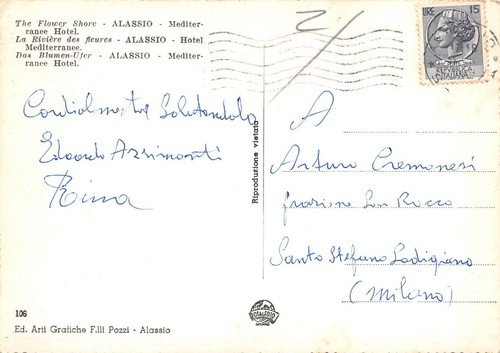 The Flower Shore - ALASSIO - Mediter-
ranee Hotel.
La Rivière des fleures - ALASSIO - Hotel
Mediterranee.
Das Blumen-Ufer - ALASSIO - Mediter-
ranee Hotel.
LIRE 15
ITALIANA
Cordialmente Salutandola
Edoardo Azzimonti
Rina
Riproduzione vietata
A
Arturo Cremonesi
frazione San Rocco
Santo Stefano Lodigiano
(Milano)
106
Ed. Arti Grafiche F.lli Pozzi - Alassio